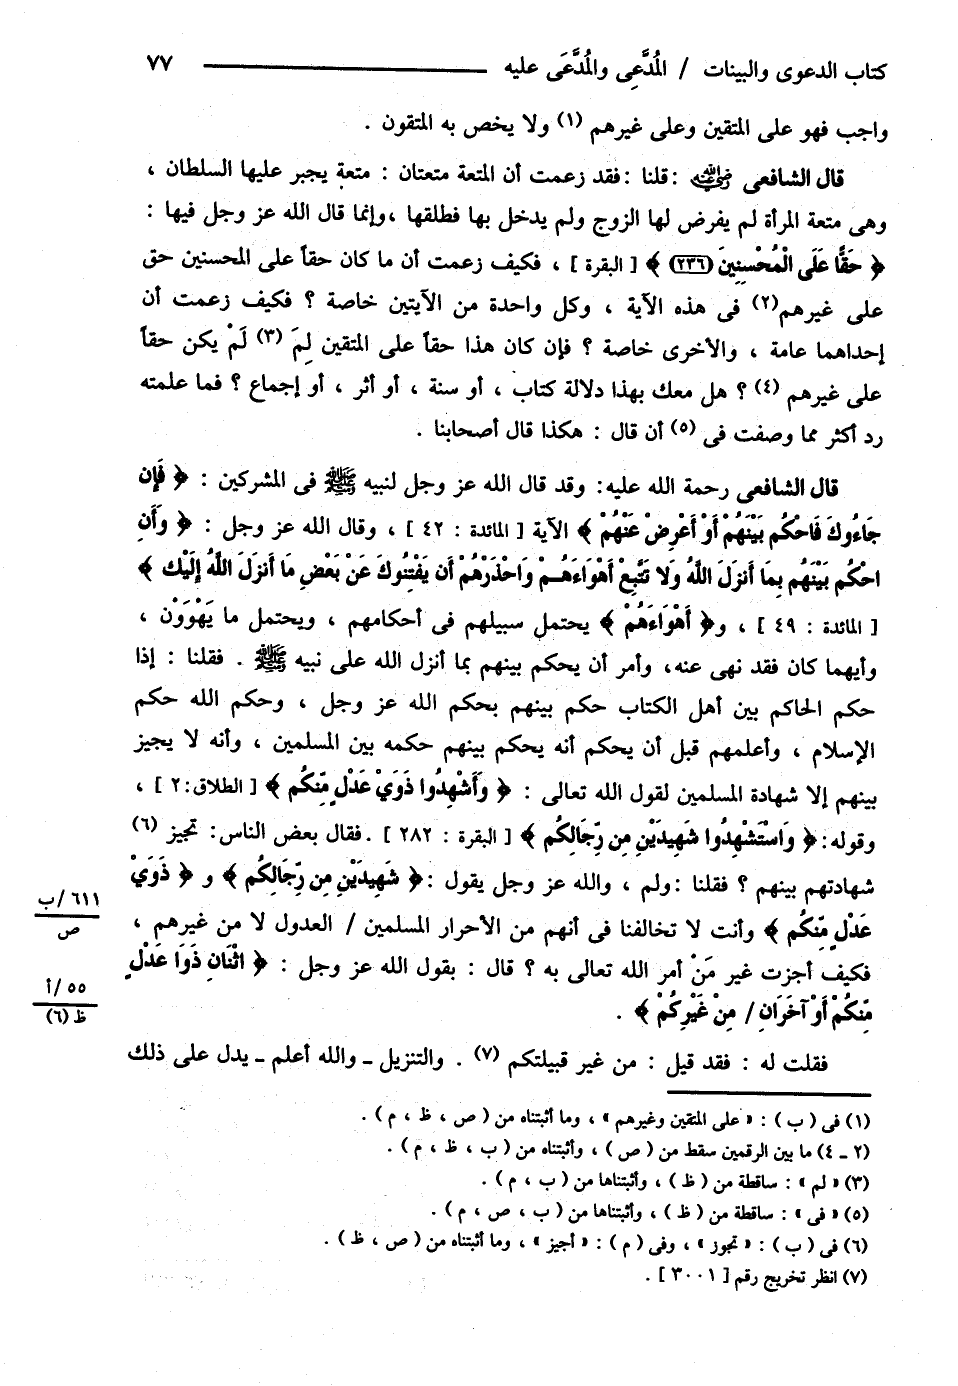 كتاب الدعوى والبينات / المُدَّعِى والمُدَّعَى عليه ٧٧
واجب فهو على المتقين وعلى غيرهم (١) ولا يخص به المتقون .
قال الشافعى رضي الله عنه : قلنا : فقد زعمت أن المتعة متعتان : متعة يجبر عليها السلطان ،
وهى متعة المرأة لم يفرض لها الزوج ولم يدخل بها فطلقها ، وإنما قال الله عز وجل فيها :
﴿ حَقًّا عَلَى الْمُحْسِنِينَ (٢٣٦) ﴾ [ البقرة ] ، فكيف زعمت أن ما كان حقاً على المحسنين حق
على غيرهم(٢) فى هذه الآية ، وكل واحدة من الآيتين خاصة ؟ فكيف زعمت أن
إحداهما عامة ، والأخرى خاصة ؟ فإن كان هذا حقاً على المتقين لِمَ (٣) لَمْ يكن حقاً
على غيرهم (٤) ؟ هل معك بهذا دلالة كتاب ، أو سنة ، أو أثر ، أو إجماع ؟ فما علمته
رد أكثر مما وصفت فى (٥) أن قال : هكذا قال أصحابنا .
قال الشافعى رحمة الله عليه: وقد قال الله عز وجل لنبيه ﷺ فى المشركين : ﴿ فَإِن
جَاءُوكَ فَاحْكُم بَيْنَهُمْ أَوْ أَعْرِضْ عَنْهُمْ ﴾ الآية [ المائدة : ٤٢ ] ، وقال الله عز وجل : ﴿ وَأَنِ
احْكُم بَيْنَهُم بِمَا أَنزَلَ اللَّهُ وَلا تَتَّبِعْ أَهْوَاءَهُمْ وَاحْذَرْهُمْ أَن يَفْتِنُوكَ عَنْ بَعْضِ مَا أَنزَلَ اللَّهُ إِلَيْكَ ﴾
[ المائدة : ٤٩ ] ، و﴿ أَهْوَاءَهُمْ ﴾ يحتمل سبيلهم فى أحكامهم ، ويحتمل ما يَهْوَوْن ،
وأيهما كان فقد نهى عنه، وأمر أن يحكم بينهم بما أنزل الله على نبيه ﷺ . فقلنا : إذا
حكم الحاكم بين أهل الكتاب حكم بينهم بحكم الله عز وجل ، وحكم الله حكم
الإسلام ، وأعلمهم قبل أن يحكم أنه يحكم بينهم حكمه بين المسلمين ، وأنه لا يجيز
بينهم إلا شهادة المسلمين لقول الله تعالى : ﴿ وَأَشْهِدُوا ذَوَيْ عَدْلٍ مِّنكُم ﴾ [ الطلاق:٢ ] ،
وقوله: ﴿ وَاسْتَشْهِدُوا شَهِيدَيْنِ مِن رِّجَالِكُم ﴾ [ البقرة : ٢٨٢ ] .فقال بعض الناس: تجيز (٦)
شهادتهم بينهم ؟ فقلنا :ولم ، والله عز وجل يقول :﴿ شَهِيدَيْنِ مِن رِّجَالِكُم ﴾ و ﴿ ذَوَيْ
عَدْلٍ مِّنكُم ﴾ وأنت لا تخالفنا فى أنهم من الأحرار المسلمين / العدول لا من غيرهم ،
٦١١/ب
ص
فكيف أجزت غير مَنْ أمر الله تعالى به ؟ قال : بقول الله عز وجل : ﴿ اثْنَانِ ذَوَا عَدْلٍ
مِّنكُمْ أَوْ آخَرَانِ / مِنْ غَيْرِكُمْ ﴾ .
٥٥/أ
ظ (٦)
فقلت له : فقد قيل : من غير قبيلتكم (٧) . والتنزيل ـ والله أعلم ـ يدل على ذلك
(١) فى ( ب ) : « على المتقين وغيرهم » ، وما أثبتناه من ( ص ، ظ ، م ) .
(٢ ـ ٤) ما بين الرقمين سقط من ( ص ) ، وأثبتناه من ( ب ، ظ ، م ) .
(٣) « لم » : ساقطة من ( ظ ) ، وأثبتناها من ( ب ، م ) .
(٥) « فى » : ساقطة من ( ظ ) ، وأثبتناها من ( ب ، ص ، م ) .
(٦) فى ( ب ) : « تجوز » ، وفى ( م ) : « أجيز » ، وما أثبتناه من ( ص ، ظ ) .
(٧) انظر تخريج رقم [ ٣٠٠١ ] .